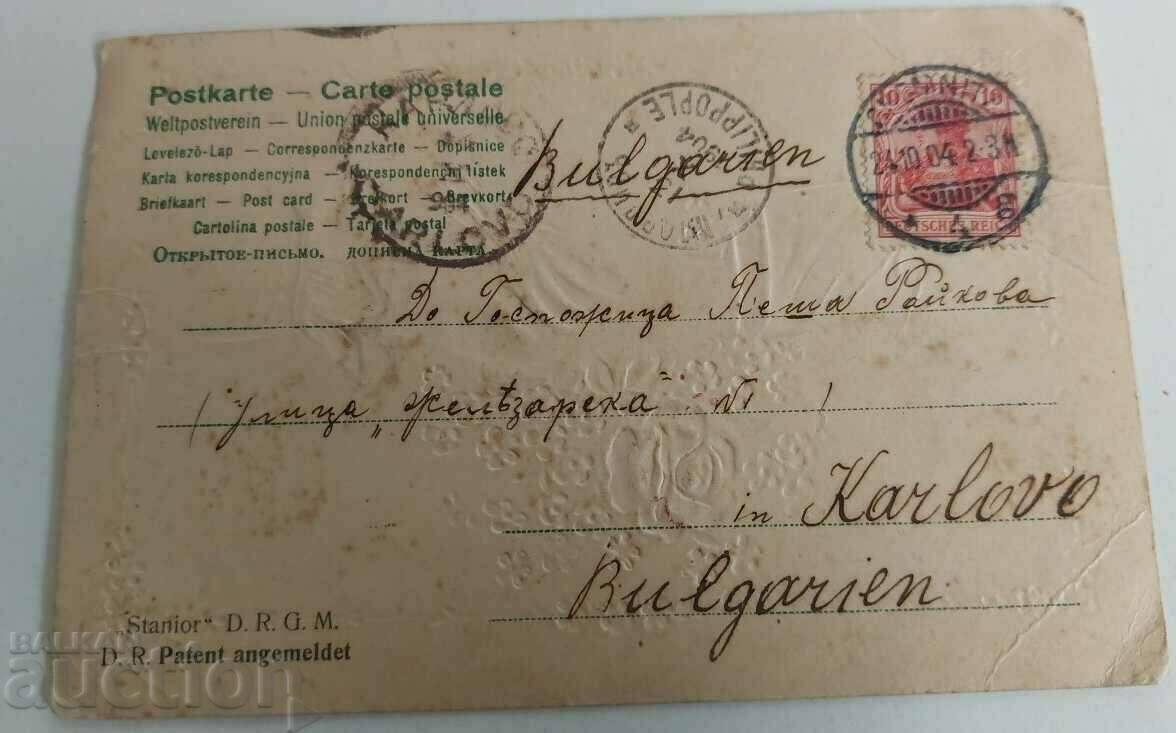 Postkarte — Carte postale
Weltpostverein — Union postale universelle
Levelezö-Lap — Correspondenzkarte — Dopisnice
Karta korespondencyjna — Korespondenční lístek
Briefkaart — Post card — Brefkort — Brevkort
Cartolina postale — Tarjeta postal
Открытое-письмо. дописна карта.
Bulgarien
PHILIPPOPLE
KARLOVO
10 10
24.10.04. 2-3N
DEUTSCHES REICH
До Госпожица Пеша Райкова
(улица „Желѣзарска“
in Karlovo
Bulgarien
„Stanior“ D. R. G. M.
D. R. Patent angemeldet
BALKAN
auction